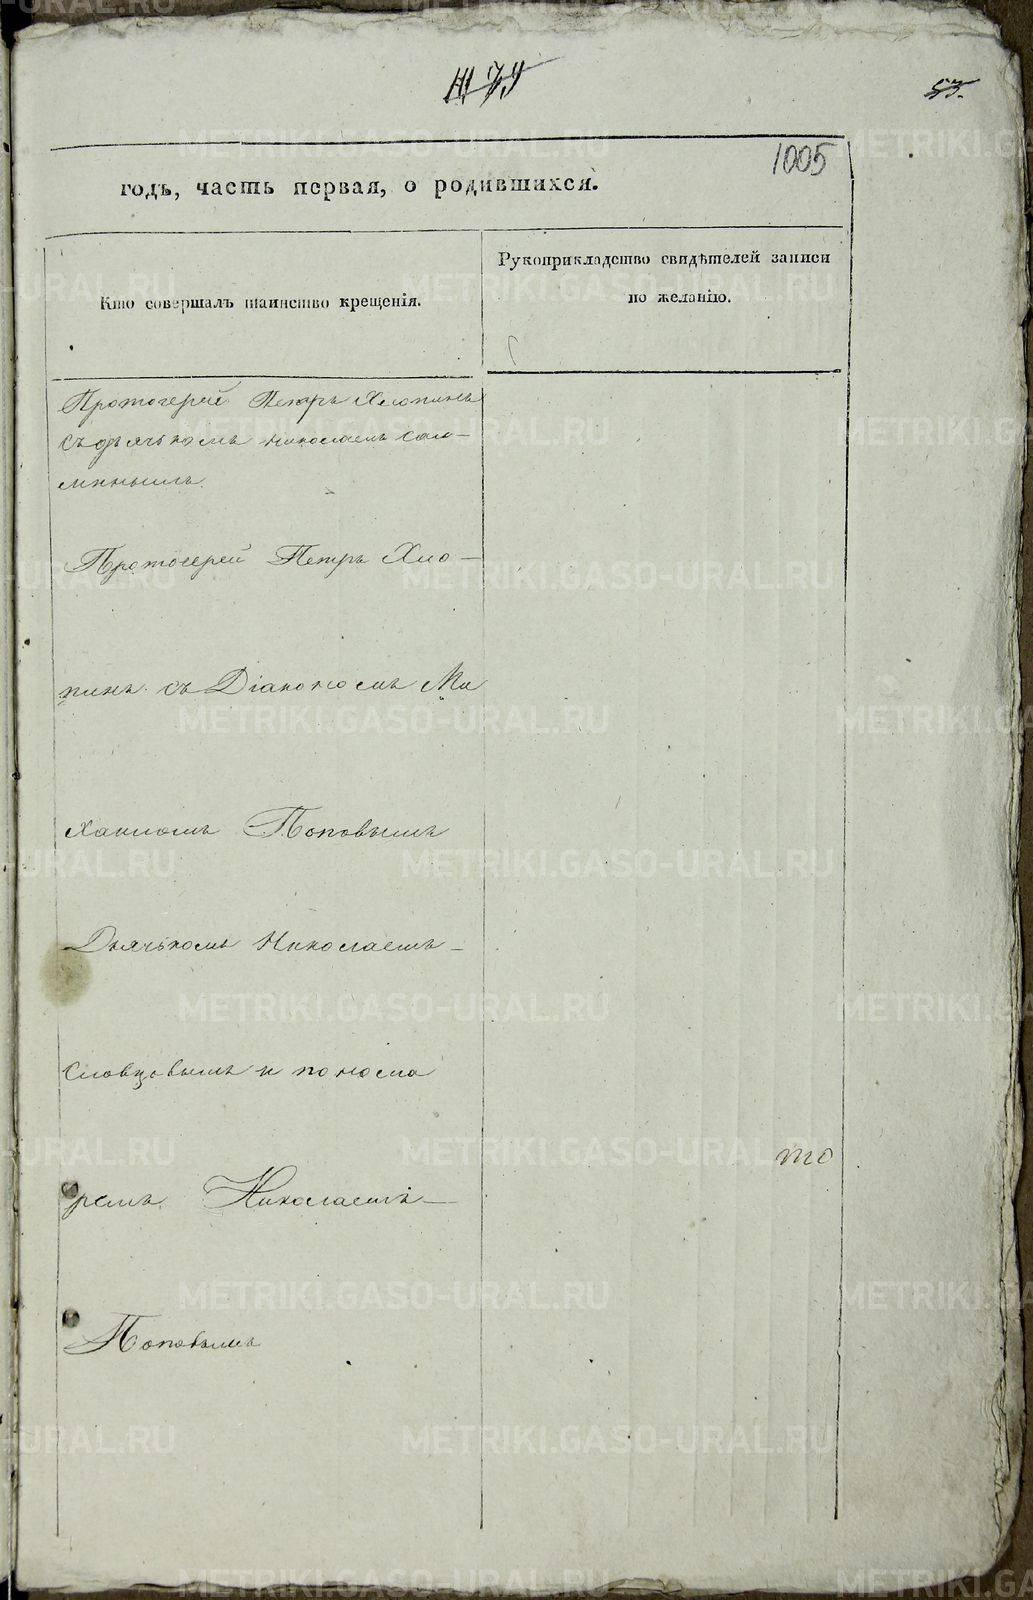 53.
1005
годъ, часть первая, о родившихся.
Кто совершалъ таинство крещенія.
Рукоприкладство свидѣтелей записи
по желанію.
Протоіерей Петръ Хлопинъ
съ дьячькомъ Николаемъ
Протоіерей Петръ Хло–
пинъ съ Діакономъ Ми
хаиломъ Поповымъ
Дьячькомъ Николаемъ –
Словцовымъ и понома
ремъ Николаемъ –
Поповымъ
то
METRIKI.GASO-URAL.RU